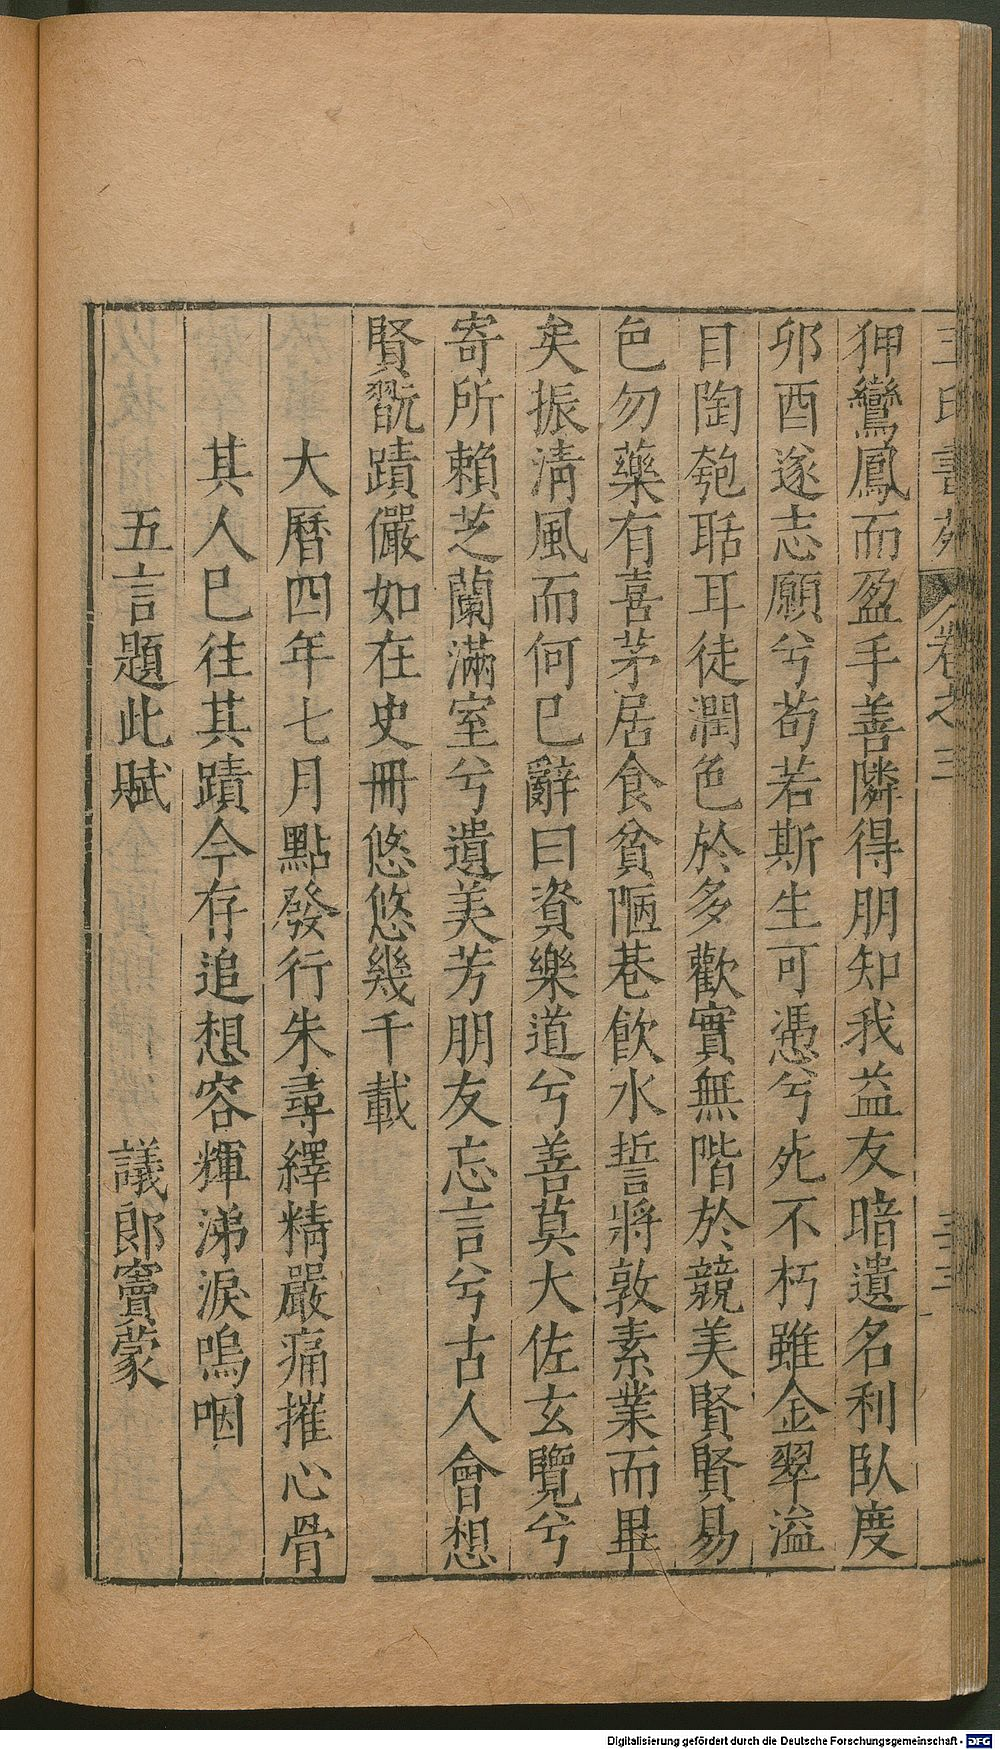 王氏書苑 卷之三 三十三
狎鸞鳳而盈手善隣得朋知我益友暗遺名利臥度
卯酉遂志願兮苟若斯生可憑兮死不朽雖金翠溢
目陶匏聒耳徒潤色於多歡實無階於競美賢賢易
色勿藥有喜茅居食貧陋巷飲水誓將敦素業而畢
矣振清風而何已辭曰資樂道兮善莫大佐玄覽兮
寄所賴芝蘭滿室兮遺美芳朋友忘言兮古人會想
賢翫蹟儼如在史冊悠悠幾千載
大曆四年七月點發行朱尋繹精嚴痛摧心骨
其人已往其蹟今存追想容輝涕淚嗚咽
五言題此賦 議郎竇蒙
Digitalisierung gefördert durch die Deutsche Forschungsgemeinschaft - DFG